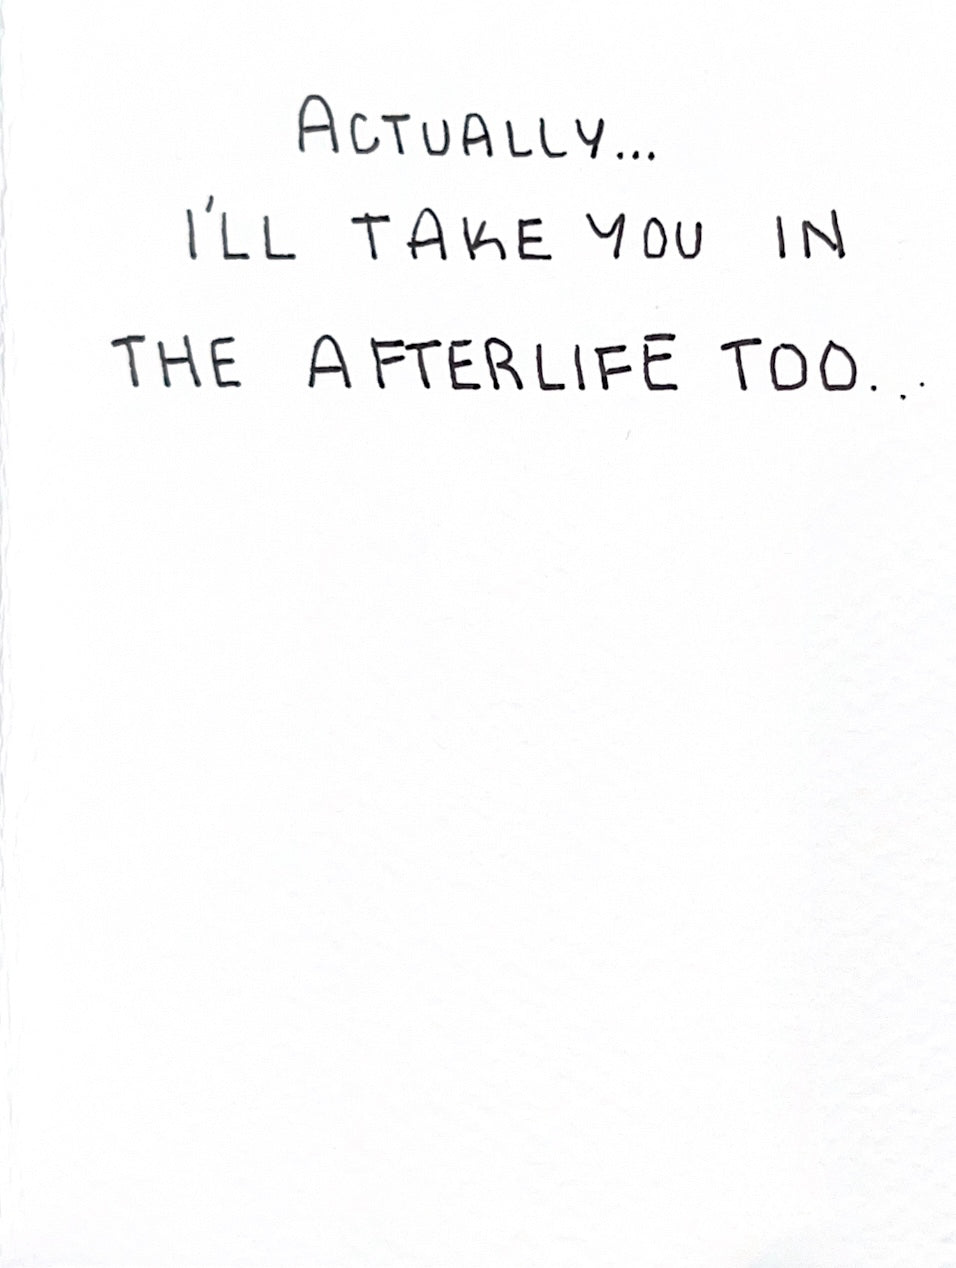 ACTUALLY...
I'LL TAKE YOU IN
THE AFTERLIFE TOO...